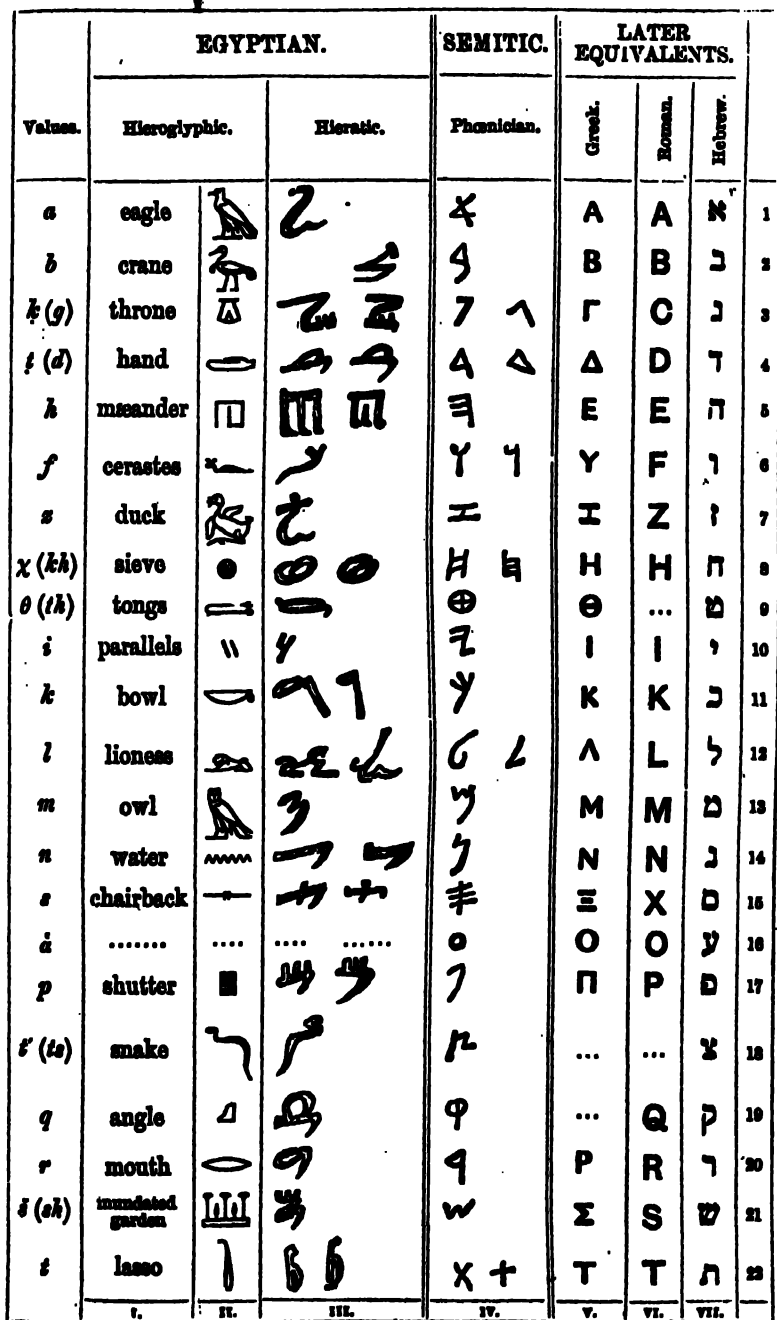 EGYPTIAN. SEMITIC. LATER EQUIVALENTS.
Values. Hieroglyphic. Hieratic. Phœnician. Greek. Roman. Hebrew.
a eagle 𐤀 A A א 1
b crane 𐤁 B B ב 2
ḳ (g) throne 𐤂 Γ C נ 3
ṭ (d) hand 𐤃 Δ D ד 4
h mæander 𐤄 E E ה 5
f cerastes 𐤅 Y F ו 6
z duck 𐤆 Ɪ Z ז 7
χ (kh) sieve 𐤇 H H ח 8
θ (th) tongs 𐤈 Θ ... 9
i parallels \\ 𐤉 I I י 10
k bowl 𐤊 K K כ 11
l lioness 𐤋 Λ L ל 12
m owl 𐤌 M M מ 13
n water 𐤍 N N נ 14
s chairback 𐤎 Ξ X ם 15
ȧ ....... .... .... ...... 𐤏 O O ע 16
p shutter 𐤐 Π P 17
t' (ts) snake 𐤑 ... ... צ 18
q angle 𐤒 ... Q ק 19
r mouth 𐤓 P R ר 20
š (sh) inundated garden 𐤔 Σ S ש 21
t lasso 𐤕 T T ת 22
I. II. III. IV. V. VI. VII.